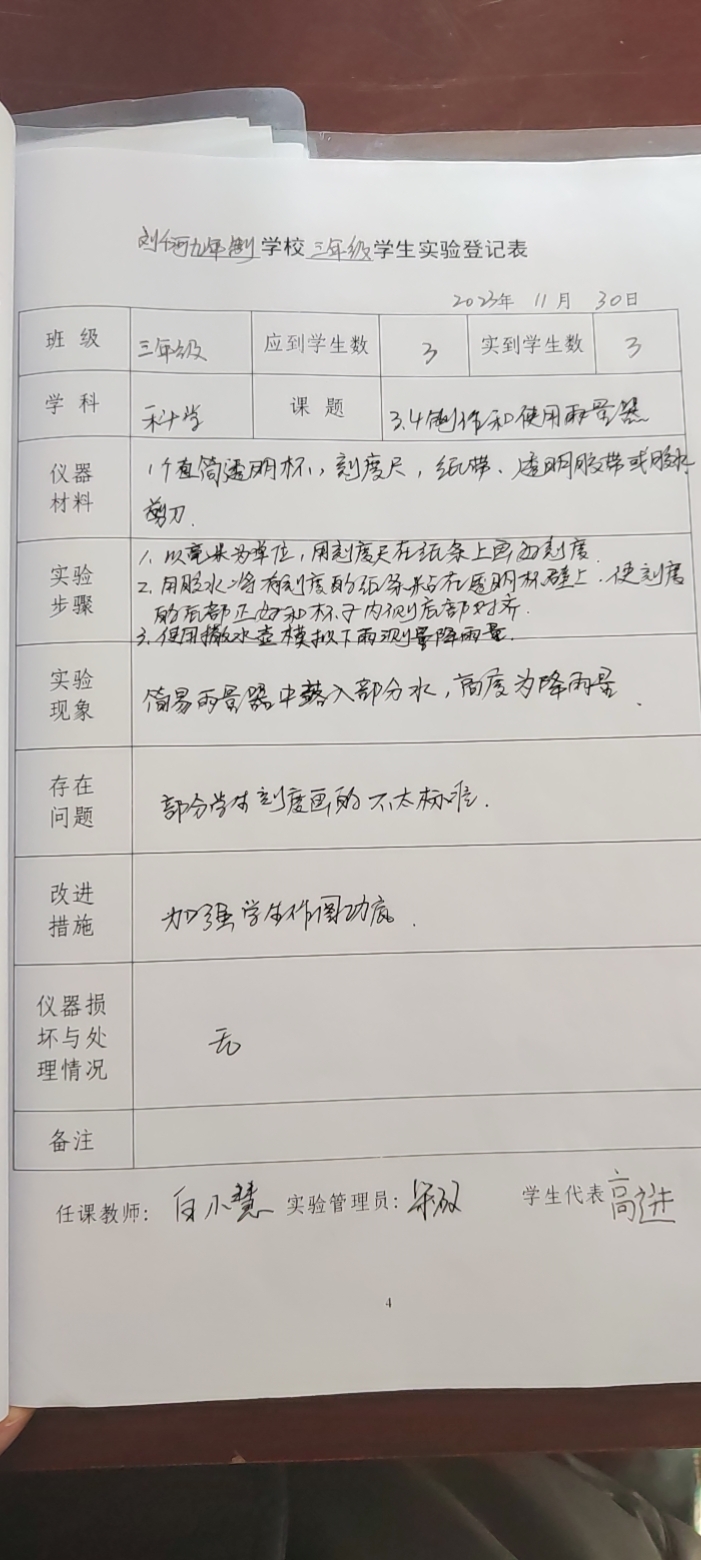 刘何九年制学校三年级学生实验登记表
2023年 11月 30日
班级 三年级 应到学生数 3 实到学生数 3
学科 科学 课题 3.4制作和使用雨量器
仪器材料 1个直筒透明杯、刻度尺，纸带、透明胶带或胶水
剪刀.
实验步骤 1. 以毫米为单位，用刻度尺在纸条上画刻度.
2. 用胶水将有刻度的纸条粘在透明杯壁上.使刻度
的底部正好和杯子内侧底部对齐.
3. 使用撒水壶模拟下雨测量降雨量.
实验现象 简易雨量器中落入部分水，高度为降雨量.
存在问题 部分学生刻度画的不太标准.
改进措施 加强学生作图功底.
仪器损坏与处理情况 无
备注
任课教师：白小慧 实验管理员： 学生代表 高进
4